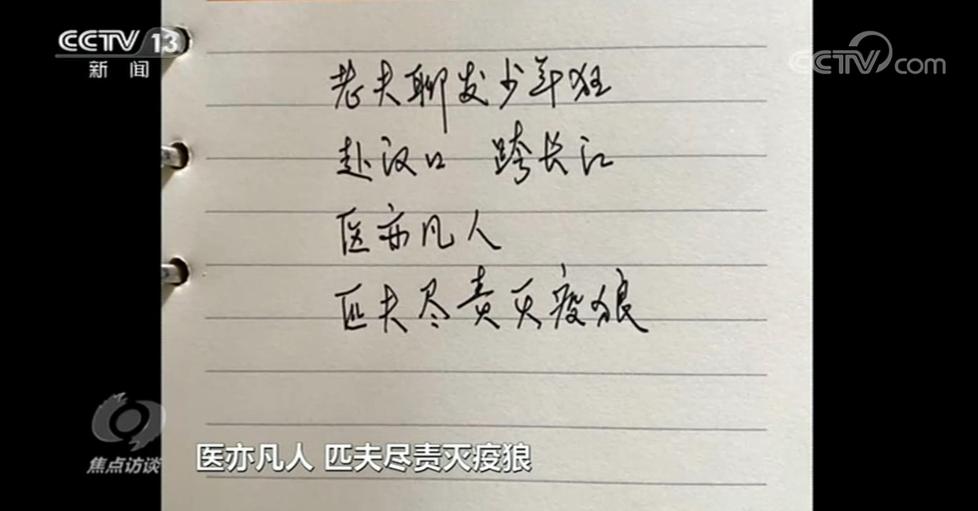 CCTV 13
新闻
CCTV.com
老夫聊发少年狂
赴汉口 跨长江
医亦凡人
匹夫尽责灭疫狼
焦点访谈
医亦凡人 匹夫尽责灭疫狼